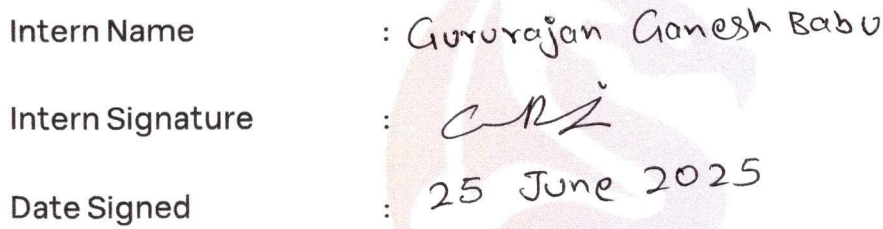 Intern Name : Gururajan Ganesh Babu
Intern Signature :
Date Signed : 25 June 2025